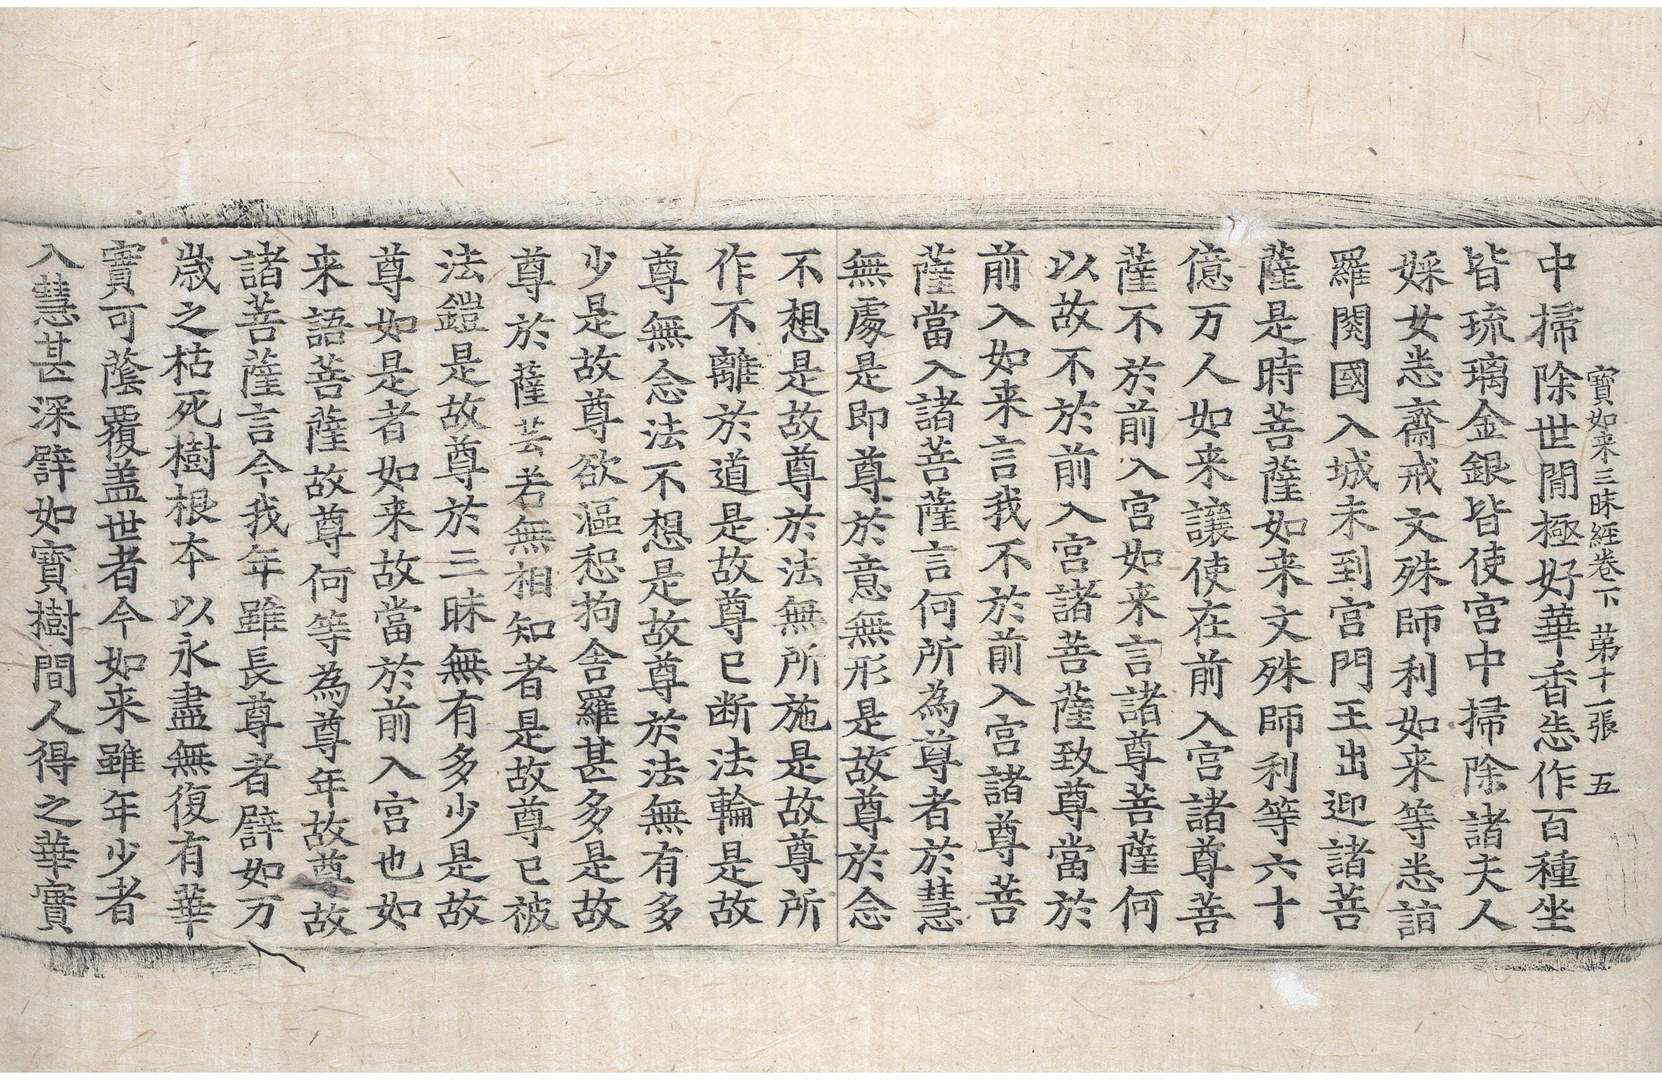 寶如来三昧經卷下 苐十一張 五
中掃除世閒極好華香恙作百種坐
皆琉璃金銀皆使宫中掃除諸夫人
婇女恙齋戒文殊師利如来等恙詣
羅閱國入城未到宫門王出迎諸菩
薩是時菩薩如来文殊師利等六十
億万人如来讓使在前入宫諸尊菩
薩不於前入宫如来言諸尊菩薩何
以故不於前入宫諸菩薩致尊當於
前入如来言我不於前入宫諸尊菩
薩當入諸菩薩言何所為尊者於慧
無處是即尊於意無形是故尊於念
不想是故尊於法無所施是故尊所
作不離於道是故尊已断法輪是故
尊無念法不想是故尊於法無有多
少是故尊欲漚惒拘舍羅甚多是故
尊於薩芸若無相知者是故尊已被
法鎧是故尊於三昧無有多少是故
尊如是者如来故當於前入宫也如
来語菩薩故尊何等為尊年故尊故
諸菩薩言今我年雖長尊者譬如万
歲之枯死樹根本以永盡無復有華
實可蔭覆盖世者今如来雖年少者
入慧甚深譬如寶樹間人得之華實